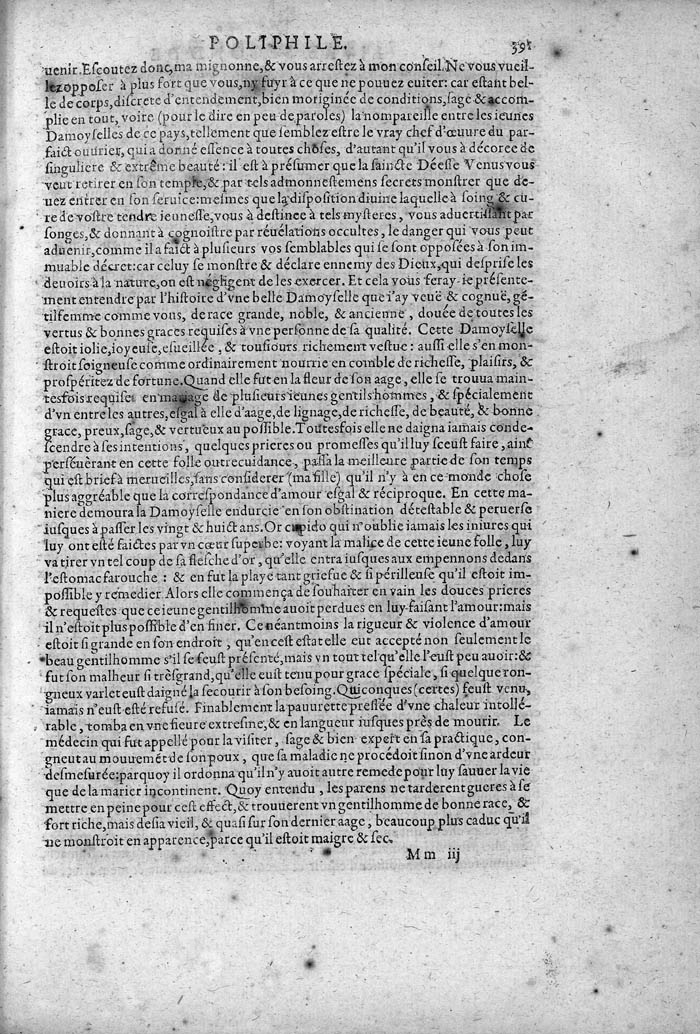 POLIPHILE. 39
uenir. Escoutez donc, ma mignonne, & vous arrestez à mon conseil. Ne vous vueil-
lez opposer à plus fort que vous, ny fuyr à ce que ne pouuez euiter: car estant bel-
le de corps, discrete d'entendement, bien moriginée de conditions, sage & accom-
plie en tout, voire (pour le dire en peu de paroles) la nompareille entre les ieunes
Damoyselles de ce pays, tellement que semblez estre le vray chef d'œuure du par-
faict ouurier, qui a donné essence à toutes choses, d'autant qu'il vous à décorée de
singuliere & extrême beauté: il est à présumer que la saincte Déesse Venus vous
veut retirer en son temple, & par tels admonnestemens secrets monstrer que de-
uez entrer en son seruice: mesmes que la disposition diuine laquelle à soing & cu-
re de vostre tendre ieunesse, vous à destinée à tels mysteres, vous aduertissant par
songes, & donnant à cognoistre par réuélations occultes, le danger qui vous peut
aduenir, comme il a faict à plusieurs vos semblables qui se sont opposées à son im-
muable décret: car celuy se monstre & déclare ennemy des Dieux, qui desprise les
deuoirs à la nature, ou est négligent de les exercer. Et cela vous feray-ie présente-
ment entendre par l'histoire d'vne belle Damoyselle que i'ay veuë & cognuë, gē-
tilfemme comme vous, de race grande, noble, & ancienne, douée de toutes les
vertus & bonnes graces requises à vne personne de sa qualité. Cette Damoyselle
estoit iolie, ioyeuse, esueillée, & tousiours richement vestue: aussi elle s'en mon-
stroit soigneuse comme ordinairement nourrie en comble de richesse, plaisirs, &
prospéritez de fortune. Quand elle fut en la fleur de son aage, elle se trouua main-
tesfois requise en mariage de plusieurs ieunes gentilshommes, & spécialement
d'vn entre les autres, esgal à elle d'aage, de lignage, de richesse, de beauté, & bonne
grace, preux, sage, & vertueux au possible. Toutesfois elle ne daigna iamais conde-
scendre à ses intentions, quelques prieres ou promesses qu'il luy sceust faire, ains
perseuérant en cette folle outrecuidance, passa la meilleure partie de son temps
qui est brief à merueilles, sans considerer (ma fille) qu'il n'y à en ce monde chose
plus aggréable que la correspondance d'amour esgal & réciproque. En cette ma-
niere demoura la Damoyselle endurcie en son obstination détestable & peruerse
iusques à passer les vingt & huict ans. Or cupido qui n'oublie iamais les iniures qui
luy ont esté faictes par vn cœur superbe: voyant la malice de cette ieune folle, luy
va tirer vn tel coup de sa flesche d'or, qu'elle entra iusques aux empennons dedans
l'estomac farouche: & en fut la playe tant griefue & si périlleuse qu'il estoit im-
possible y remedier. Alors elle commença de souhaiter en vain les douces prieres
& requestes que ce ieune gentilhomme auoit perdues en luy faisant l'amour: mais
il n'estoit plus possible d'en finer. Ce néantmoins la rigueur & violence d'amour
estoit si grande en son endroit, qu'en cest estat elle eut accepté non seulement le
beau gentilhomme s'il se feust présenté, mais vn tout tel qu'elle l'eust peu auoir: &
fut son malheur si trèsgrand, qu'elle eust tenu pour grace spéciale, si quelque ron-
gneux varlet eust daigné la secourir à son besoing. Quiconques (certes) feust venu,
iamais n'eust esté refusé. Finablement la pauurette pressée d'vne chaleur intollé-
rable, tomba en vne fieure extresme, & en langueur iusques près de mourir. Le
médecin qui fut appellé pour la visiter, sage & bien expert en sa practique, con-
gneut au mouuemēt de son poux, que sa maladie ne procédoit sinon d'vne ardeur
desmesurée: parquoy il ordonna qu'il n'y auoit autre remede pour luy sauuer la vie
que de la marier incontinent. Quoy entendu, les parens ne tarderent gueres à se
mettre en peine pour cest effect, & trouuerent vn gentilhomme de bonne race, &
fort riche, mais desia vieil, & quasi sur son dernier aage, beaucoup plus caduc qu'il
ne monstroit en apparence, parce qu'il estoit maigre & sec.
Mm iij